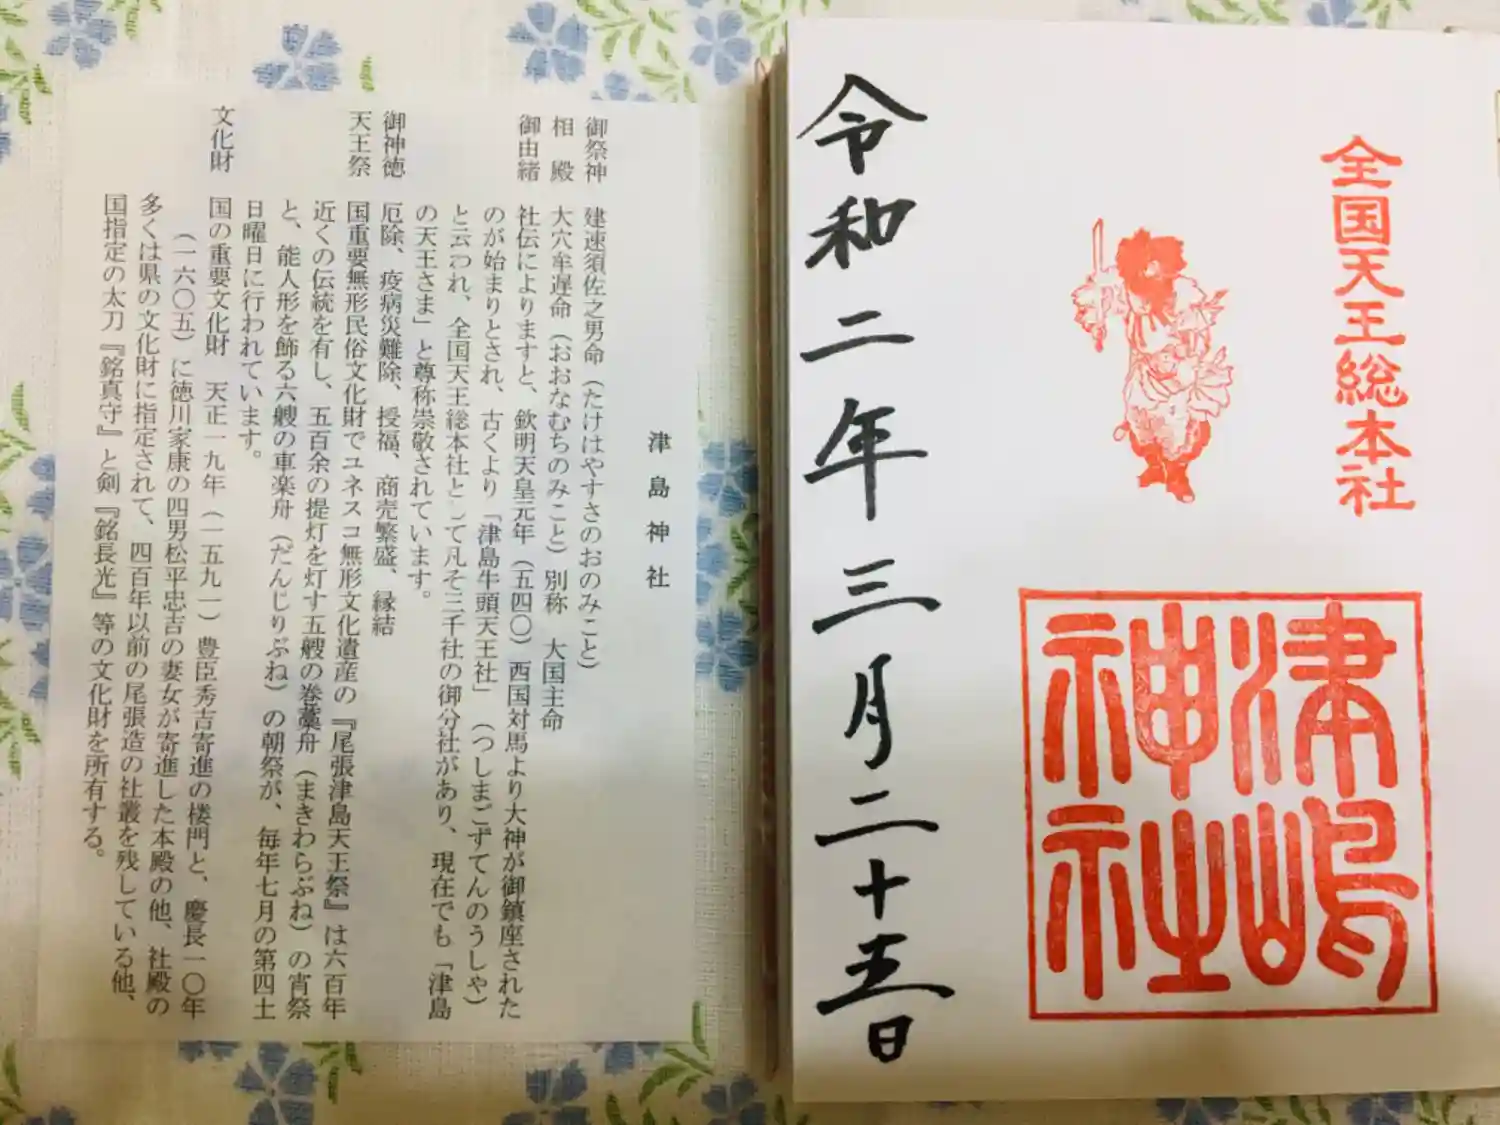 全国天王総本社
津嶋
神社
令和二年三月二十五日
津島神社
御祭神 建速須佐之男命（たけはやすさのおのみこと）
相殿 大穴牟遅命（おおなむちのみこと）別称 大国主命
御由緒 社伝によりますと、欽明天皇元年（五四〇）西国対馬より大神が御鎮座された
のが始まりとされ、古くより「津島牛頭天王社」（つしまごずてんのうしゃ）
と云われ、全国天王総本社として凡そ三千社の御分社があり、現在でも「津島
の天王さま」と尊称崇敬されています。
御神徳 厄除、疫病災難除、授福、商売繁盛、縁結
天王祭 国重要無形民俗文化財でユネスコ無形文化遺産の『尾張津島天王祭』は六百年
近くの伝統を有し、五百余の提灯を灯す五艘の巻藁舟（まきわらぶね）の宵祭
と、能人形を飾る六艘の車楽舟（だんじりぶね）の朝祭が、毎年七月の第四土
日曜日に行われています。
文化財 国の重要文化財 天正一九年（一五九一）豊臣秀吉寄進の楼門と、慶長一〇年
（一六〇五）に徳川家康の四男松平忠吉の妻女が寄進した本殿の他、社殿の
多くは県の文化財に指定されて、四百年以前の尾張造の社叢を残している他、
国指定の太刀『銘真守』と剣『銘長光』等の文化財を所有する。